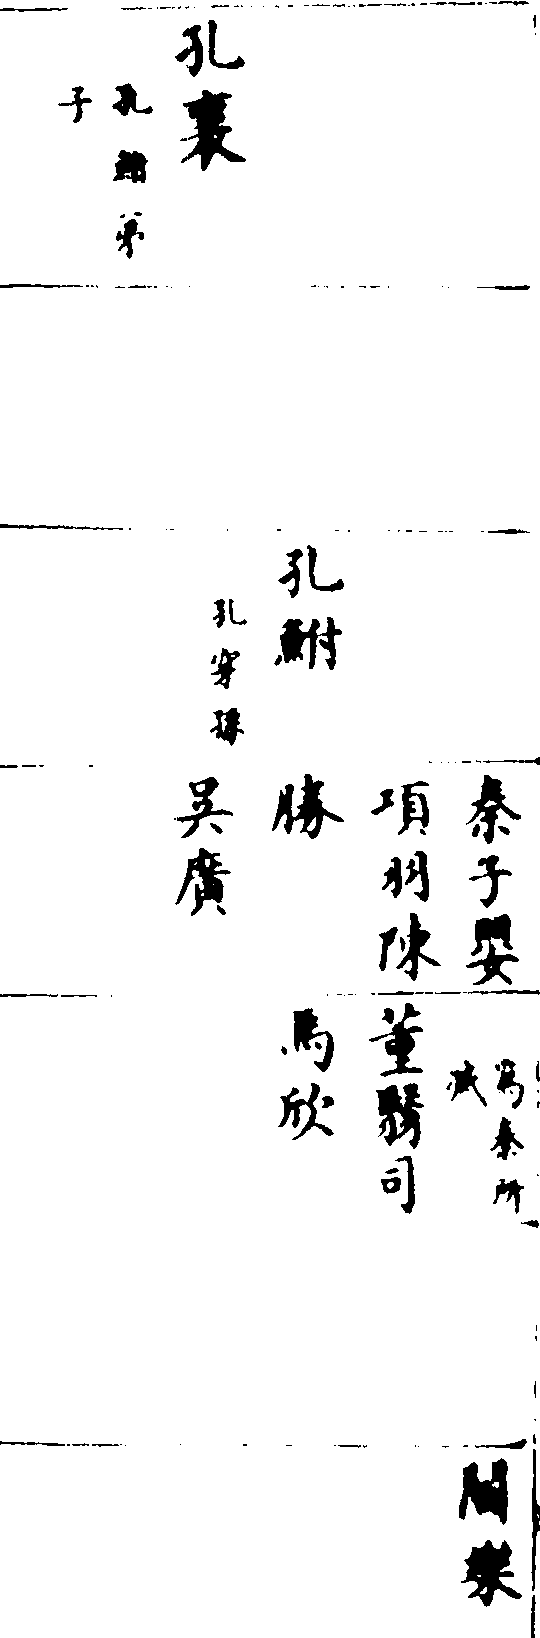 孔襄
孔鮒弟
子
孔鮒
孔穿孫
秦子嬰
項羽陳
勝
吳廣
爲秦所
滅
董翳司
馬欣
閻樂